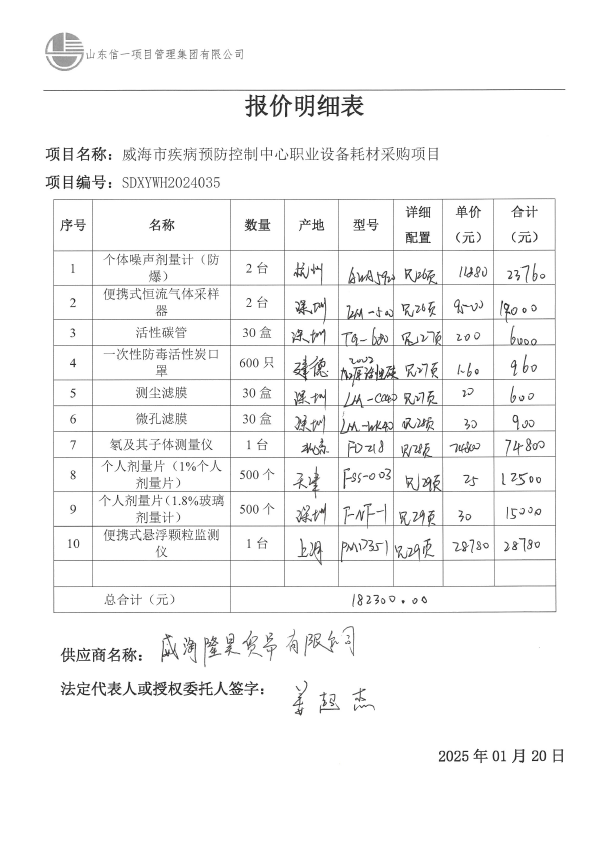 山东信一项目管理集团有限公司
报价明细表
项目名称：威海市疾病预防控制中心职业设备耗材采购项目
项目编号：SDXYWH2024035
序号 名称 数量 产地 型号 详细配置 单价（元） 合计（元）
1 个体噪声剂量计（防爆） 2 台 杭州 AWA5920 见26页 11880 23760
2 便携式恒流气体采样器 2 台 深圳 LM-500 见26页 9500 19000
3 活性碳管 30 盒 深圳 见27页 200 6000
4 一次性防毒活性炭口罩 600 只 建德 2002 加厚活性碳 见27页 1.60 960
5 测尘滤膜 30 盒 深圳 见27页 20 600
6 微孔滤膜 30 盒 深圳 见28页 30 900
7 氡及其子体测量仪 1 台 北京 FD218 见28页 74800 74800
8 个人剂量片（1%个人剂量片） 500 个 天津 见29页 25 12500
9 个人剂量片（1.8%玻璃剂量计） 500 个 深圳 F-NF-1 见29页 30 15000
10 便携式悬浮颗粒监测仪 1 台 上海 见29页 28780 28780
总合计（元） 182300.00
供应商名称：威海隆昊贸易有限公司
法定代表人或授权委托人签字：姜超杰
2025 年 01 月 20 日